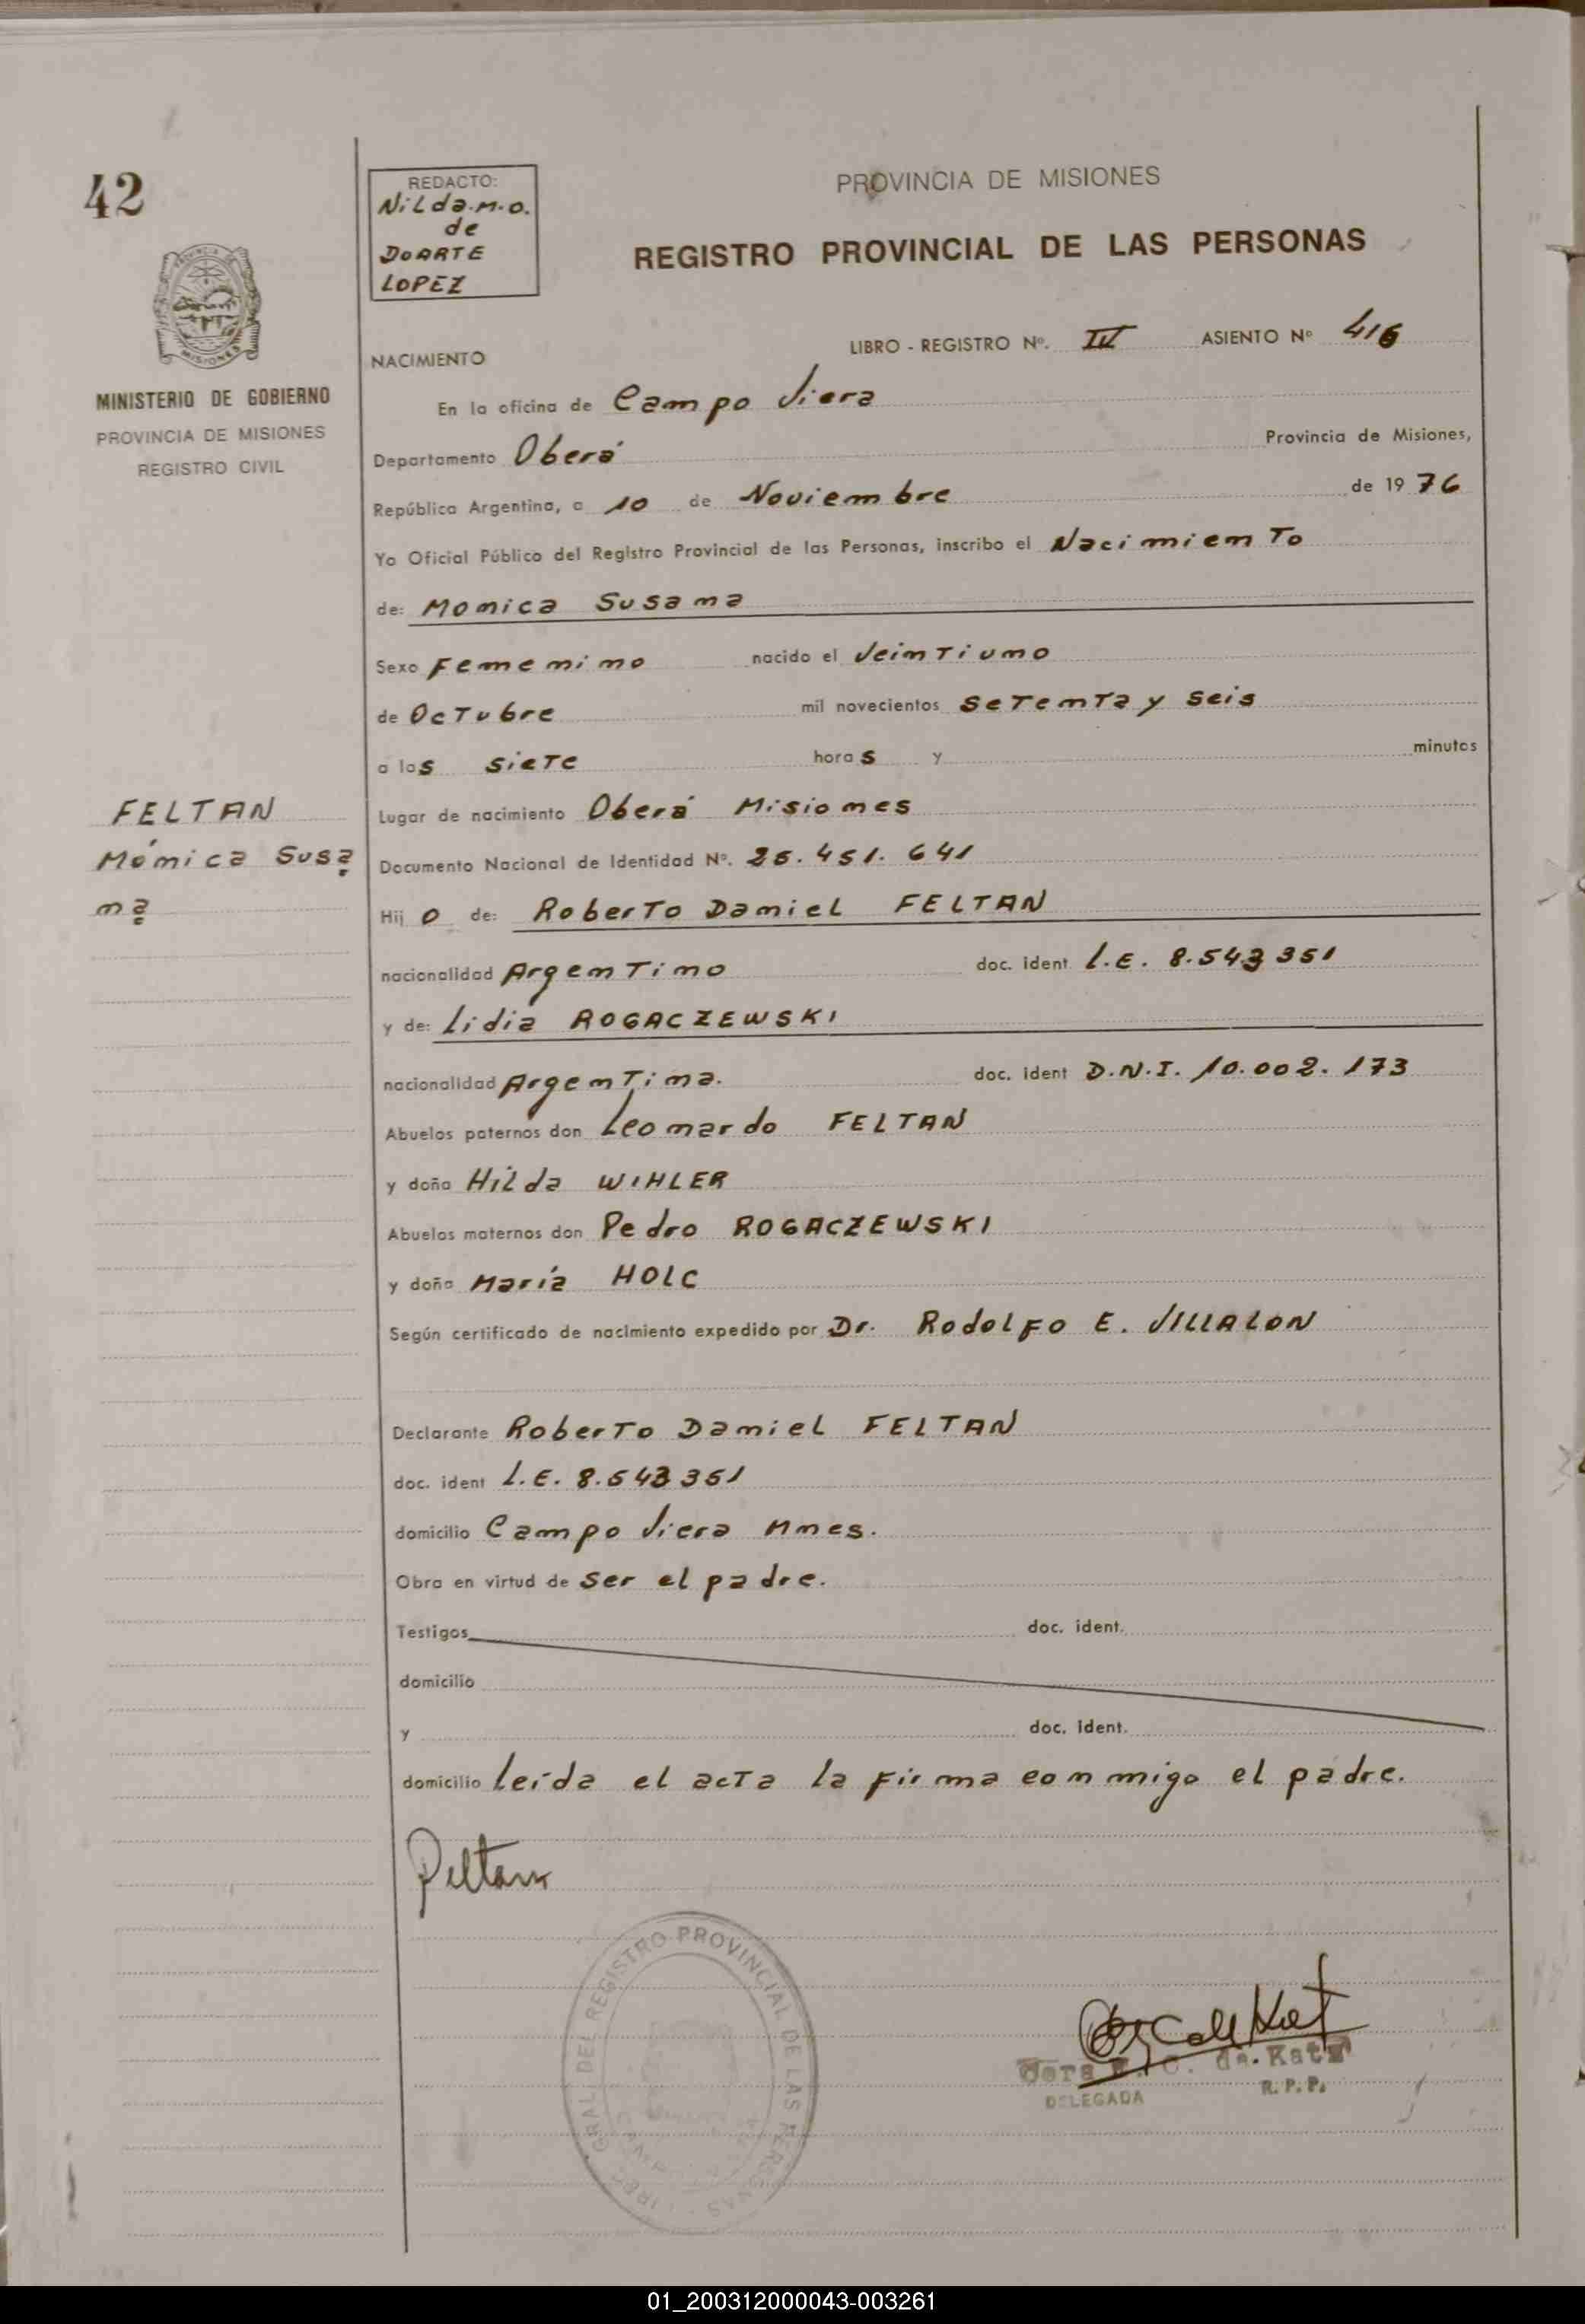 42
REDACTO:
Nilda.M.O.
de
DOARTE
LOPEZ
PROVINCIA DE MISIONES
REGISTRO PROVINCIAL DE LAS PERSONAS
MISIONES
MINISTERIO DE GOBIERNO
PROVINCIA DE MISIONES
REGISTRO CIVIL
NACIMIENTO LIBRO - REGISTRO Nº. IV ASIENTO Nº 416
En la oficina de Campo Viera
Departamento Oberá Provincia de Misiones,
República Argentina, a 10 de Noviembre de 1976
Yo Oficial Público del Registro Provincial de las Personas, inscribo el Nacimiento
de: Monica Susana
Sexo Femenino nacido el Veintiuno
de Octubre mil novecientos setenta y seis
a las siete horas y minutos
Lugar de nacimiento Oberá Misiones
FELTAN
Mónica Susa
na
Documento Nacional de Identidad Nº. 25.451.641
Hijo de: Roberto Daniel FELTAN
nacionalidad Argentino doc. ident L.E. 8.543351
y de: Lidia ROGACZEWSKI
nacionalidad Argentina. doc. ident D.N.I. 10.002.173
Abuelos paternos don Leonardo FELTAN
y doña Hilda WIHLER
Abuelos maternos don Pedro ROGACZEWSKI
y doña María HOLC
Según certificado de nacimiento expedido por Dr. Rodolfo E. VILLALON
Declarante Roberto Daniel FELTAN
doc. ident L.E. 8.543351
domicilio Campo Viera Mnes.
Obra en virtud de ser el padre.
Testigos doc. ident.
domicilio
y doc. ident.
domicilio leída el acta la firma conmigo el padre.
Feltan
GRAL DEL REGISTRO PROVINCIAL DE LAS PERSONAS
C. de Katz
DELEGADA R.P.P.
01_200312000043-003261